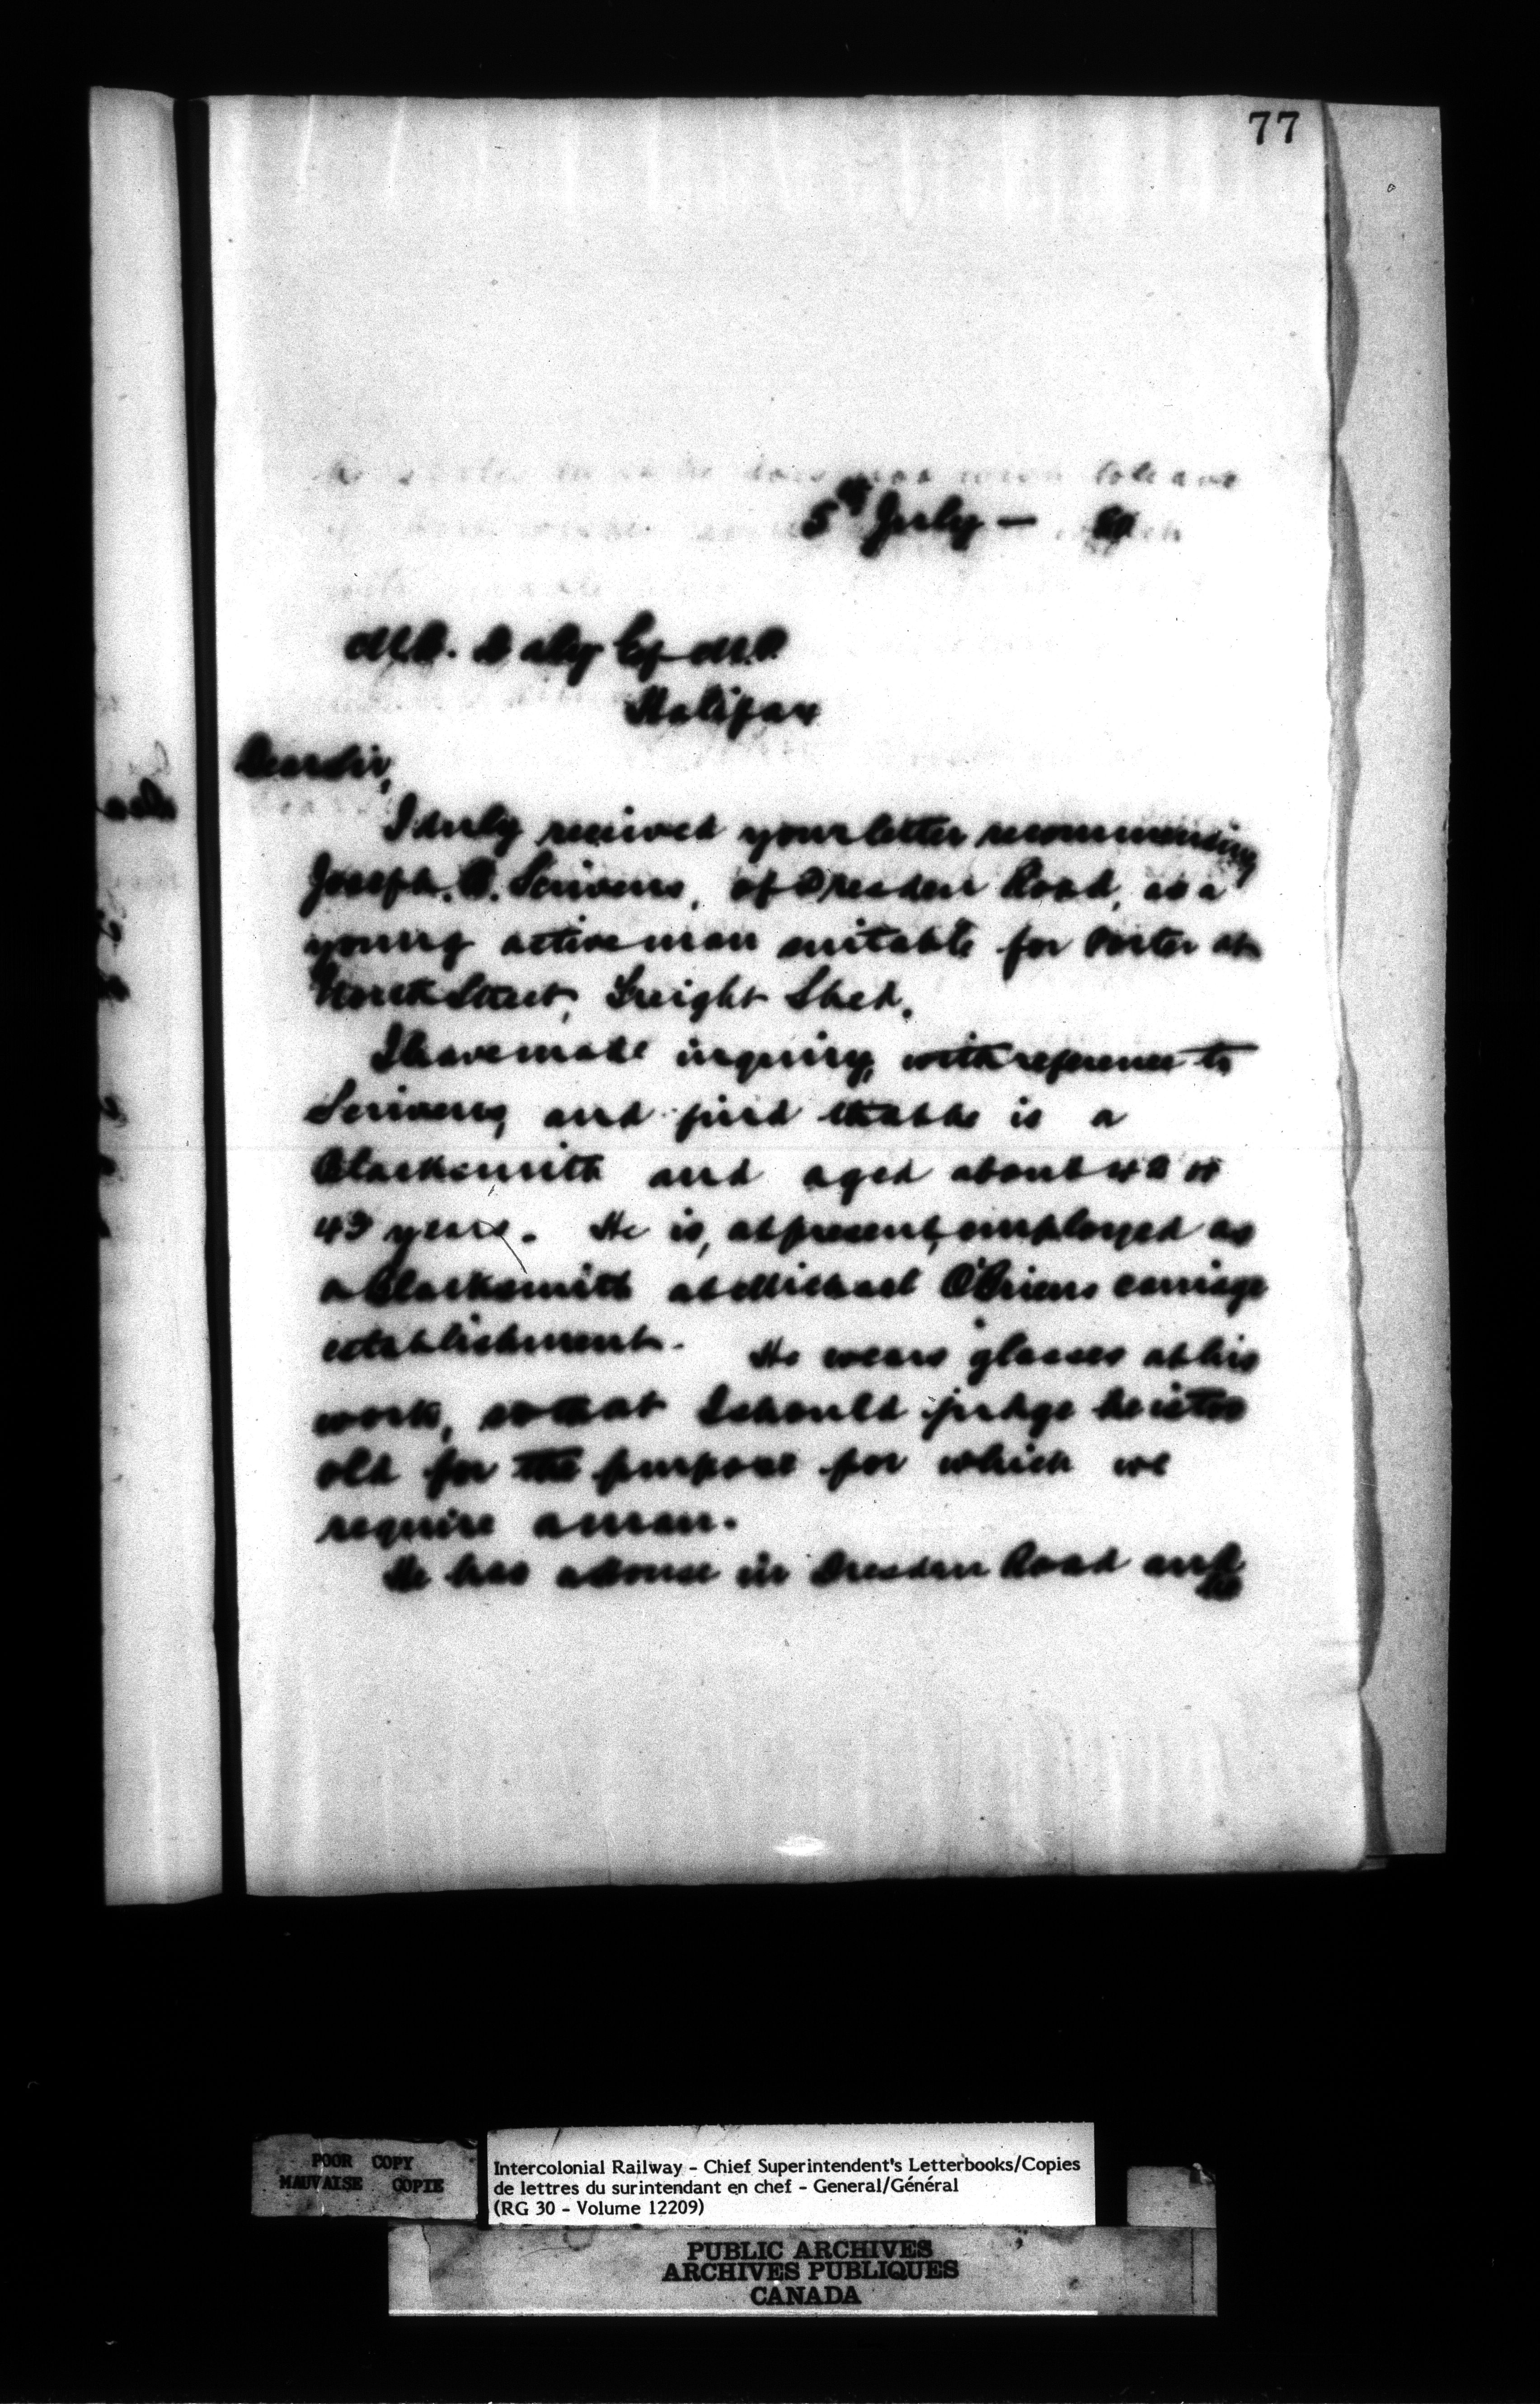 77
5th July —
M.B. Daly Esq M.P.
Halifax
Dear Sir,
I duly received your letter recommending
Joseph. B. Scrivens, of Dresden Road, as a
young active man suitable for Porter at
North Street, Freight Shed.
I have made inquiry, with reference to
Scrivens, and find that he is a
Blacksmith and aged about 42 or
43 years. He is, at present, employed as
a Blacksmith at Michael O'Briens carriage
establishment. He wears glasses at his
work, so that I should judge he is too
old for the purpose for which we
require a man.
He has a House in Dresden Road and
he
POOR COPY
MAUVAISE COPIE
Intercolonial Railway - Chief Superintendent's Letterbooks/Copies
de lettres du surintendant en chef - General/Général
(RG 30 - Volume 12209)
PUBLIC ARCHIVES
ARCHIVES PUBLIQUES
CANADA